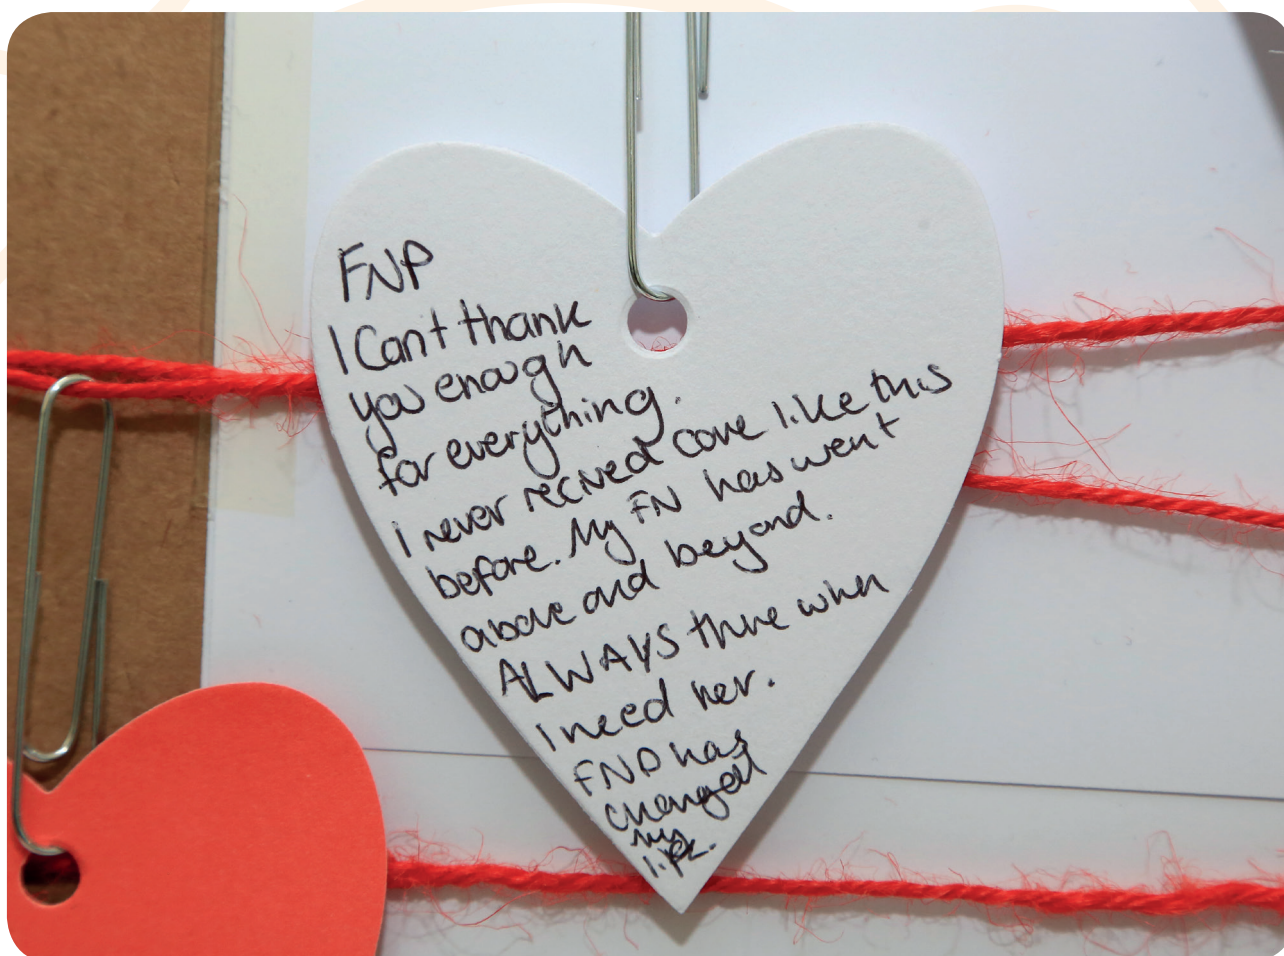 FNP
I Cant thank
you enough
for everything.
I never recived care like this
before. My FN has went
above and beyond.
ALWAYS thre when
I need her.
FNP has
changed
my
life.